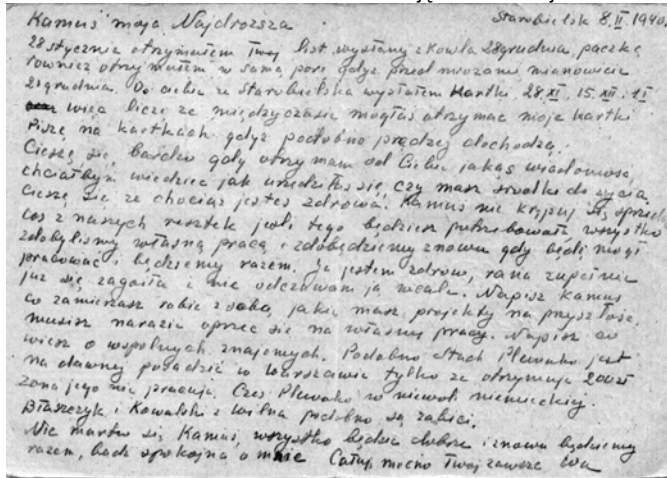 Kamuś moja Najdroższa Starobielsk 8.II.1940.
28 stycznia otrzymałem Twój list wysłany z Kowla 28 grudnia, paczkę
również otrzymałem w samą porę gdyż przed mrozami, mianowicie
21 grudnia. Do ciebie ze Starobielska wysłałem kartki 28.XI, 15.XII, 1.I
więc liczę że międzyczasie mogłaś otrzymać moje kartki
Piszę na kartkach gdyż podobno prędzej dochodzą.
Cieszę się bardzo gdy otrzymam od Ciebie jakąś wiadomość,
chciałbym wiedzieć jak urządziłaś się, czy masz środki do życia.
Cieszę się że chociaż jesteś zdrowa. Kamuś nie krępuj się sprzedać
coś z naszych resztek jeśli tego będziesz potrzebować wszystko
zdobyliśmy własną pracą i zdobędziemy znowu gdy będę mógł
pracować i będziemy razem. Ja jestem zdrów, rana zupełnie
już się zagoiła i nie odczuwam ją wcale. Napisz Kamuś
co zamierzasz robić z sobą, jakie masz projekty na przyszłość,
musisz narazie oprzeć się na własnej pracy. Napisz co
wiesz o wspólnych znajomych. Podobno Stach Plewako jest
na dawnej posadzie w Warszawie tylko że otrzymuje 200 zł
żona jego nie pracuje. Czes. Plewako w niewoli niemieckiej.
Błaszczyk i Kowalski z Wilna podobno są zabici.
Nie martw się Kamuś, wszystko będzie dobrze i znowu będziemy
razem, bądź spokojna o mnie Całuję mocno Twój zawsze